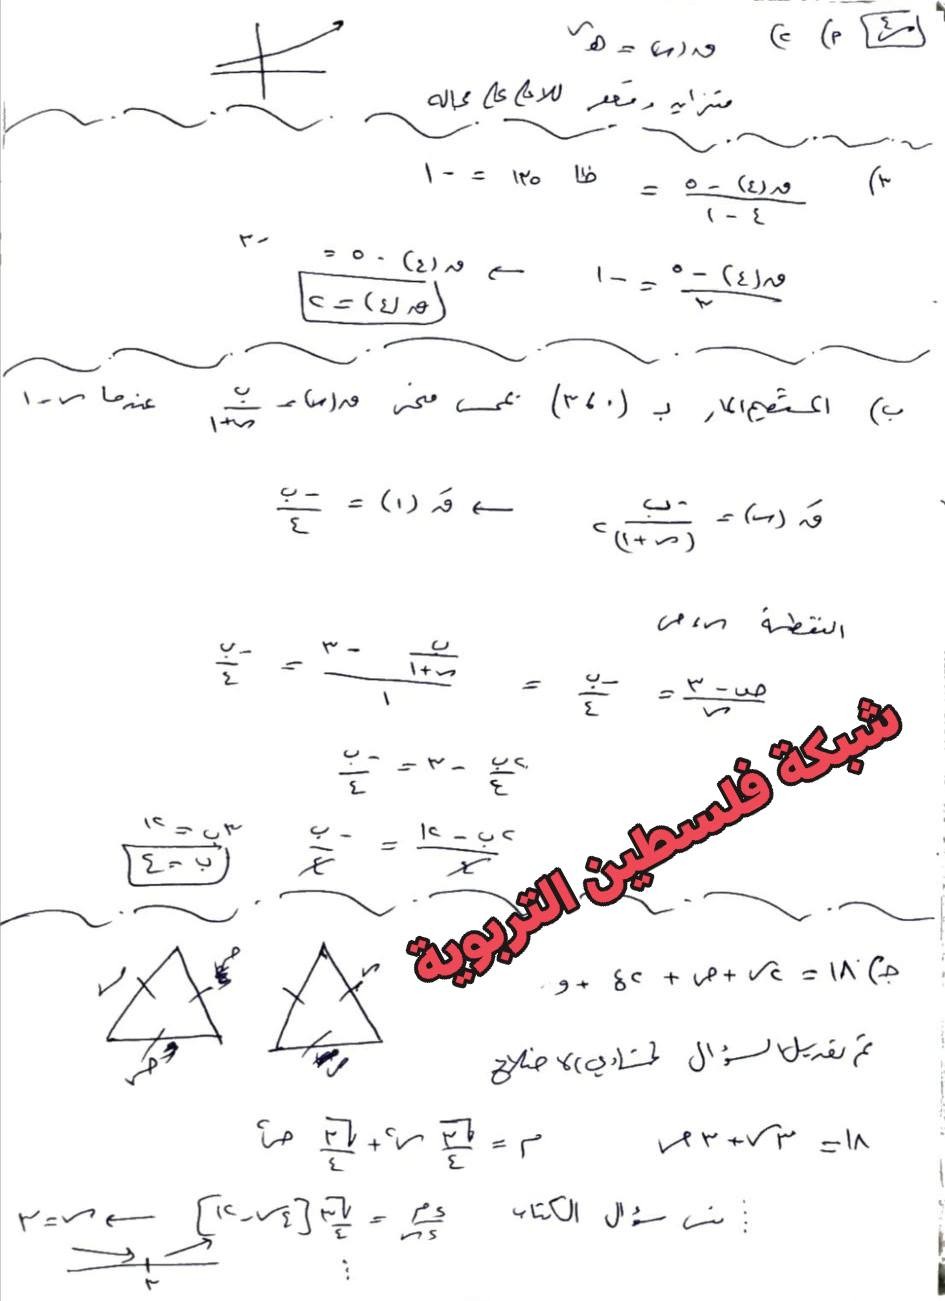 س٤) ٢) ٢) ق(س) = هـ^س
متزايد ومقعر للأعلى على مجاله
٣) (ق(٤) - ٥)/(٤ - ١) = ظا ١٣٥ = -١
(ق(٤) - ٥)/٣ = -١ ← ق(٤) - ٥ = -٣
ق(٤) = ٢
ب) المستقيم المار بـ (٠، ٣) يمس منحنى ق(س) = ب/(س+١) عندما س = ١
قَ(س) = -ب/(س+١)^٢ ← قَ(١) = -ب/٤
النقطة س، ص
(ص - ٣)/س = -ب/٤ = (ب/(س+١) - ٣)/١ = -ب/٤
٢ب/٤ - ٣ = -ب/٤
(٢ب - ١٢)/٤ = -ب/٤ ٣ب = ١٢
ب = ٤
شبكة فلسطين التربوية
جـ) ١٨ = ٢س + ص +
تم تعديل السؤال لمتساوي الأضلاع
١٨ = ٣س + ٣ص م = (√٣/٤) س^٢ + (√٣/٤) ص^٢
سؤال الكتاب دم/دس = √٣/٤ [٤س - ١٢] ← س = ٣
٣